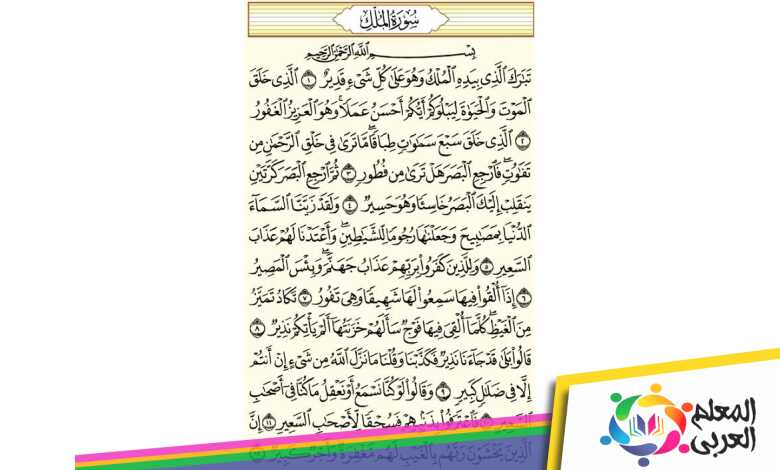 سُورَةُ المُلْكِ
بِسْمِ اللَّهِ الرَّحْمَٰنِ الرَّحِيمِ
تَبَٰرَكَ الَّذِي بِيَدِهِ الْمُلْكُ وَهُوَ عَلَىٰ كُلِّ شَيْءٍ قَدِيرٌ ١ الَّذِي خَلَقَ
الْمَوْتَ وَالْحَيَوٰةَ لِيَبْلُوَكُمْ أَيُّكُمْ أَحْسَنُ عَمَلًا ۚ وَهُوَ الْعَزِيزُ الْغَفُورُ
٢ الَّذِي خَلَقَ سَبْعَ سَمَٰوَٰتٍ طِبَاقًا ۖ مَّا تَرَىٰ فِي خَلْقِ الرَّحْمَٰنِ مِن
تَفَٰوُتٍ ۖ فَارْجِعِ الْبَصَرَ هَلْ تَرَىٰ مِن فُطُورٍ ٣ ثُمَّ ارْجِعِ الْبَصَرَ كَرَّتَيْنِ
يَنقَلِبْ إِلَيْكَ الْبَصَرُ خَاسِئًا وَهُوَ حَسِيرٌ ٤ وَلَقَدْ زَيَّنَّا السَّمَآءَ
الدُّنْيَا بِمَصَٰبِيحَ وَجَعَلْنَٰهَا رُجُومًا لِّلشَّيَٰطِينِ ۖ وَأَعْتَدْنَا لَهُمْ عَذَابَ
السَّعِيرِ ٥ وَلِلَّذِينَ كَفَرُوا بِرَبِّهِمْ عَذَابُ جَهَنَّمَ ۖ وَبِئْسَ الْمَصِيرُ
٦ إِذَا أُلْقُوا فِيهَا سَمِعُوا لَهَا شَهِيقًا وَهِيَ تَفُورُ ٧ تَكَادُ تَمَيَّزُ
مِنَ الْغَيْظِ ۖ كُلَّمَا أُلْقِيَ فِيهَا فَوْجٌ سَأَلَهُمْ خَزَنَتُهَا أَلَمْ يَأْتِكُمْ نَذِيرٌ ٨
قَالُوا بَلَىٰ قَدْ جَآءَنَا نَذِيرٌ فَكَذَّبْنَا وَقُلْنَا مَا نَزَّلَ اللَّهُ مِن شَيْءٍ إِنْ أَنتُمْ
إِلَّا فِي ضَلَٰلٍ كَبِيرٍ ٩ وَقَالُوا لَوْ كُنَّا نَسْمَعُ أَوْ نَعْقِلُ مَا كُنَّا فِي أَصْحَٰبِ
السَّعِيرِ ١٠ فَاعْتَرَفُوا بِذَنۢبِهِمْ فَسُحْقًا لِّأَصْحَٰبِ السَّعِيرِ ١١ إِنَّ
الَّذِينَ يَخْشَوْنَ رَبَّهُم بِالْغَيْبِ لَهُم مَّغْفِرَةٌ وَأَجْرٌ كَبِيرٌ ١٢
المعلم
العربي